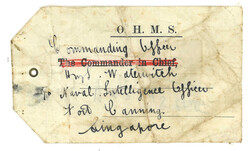 O. H. M. S.
Commanding Officer
The Commander in Chief,
H.M.S.
℅ Naval Intelligence Officer
Fort Canning.
Singapore